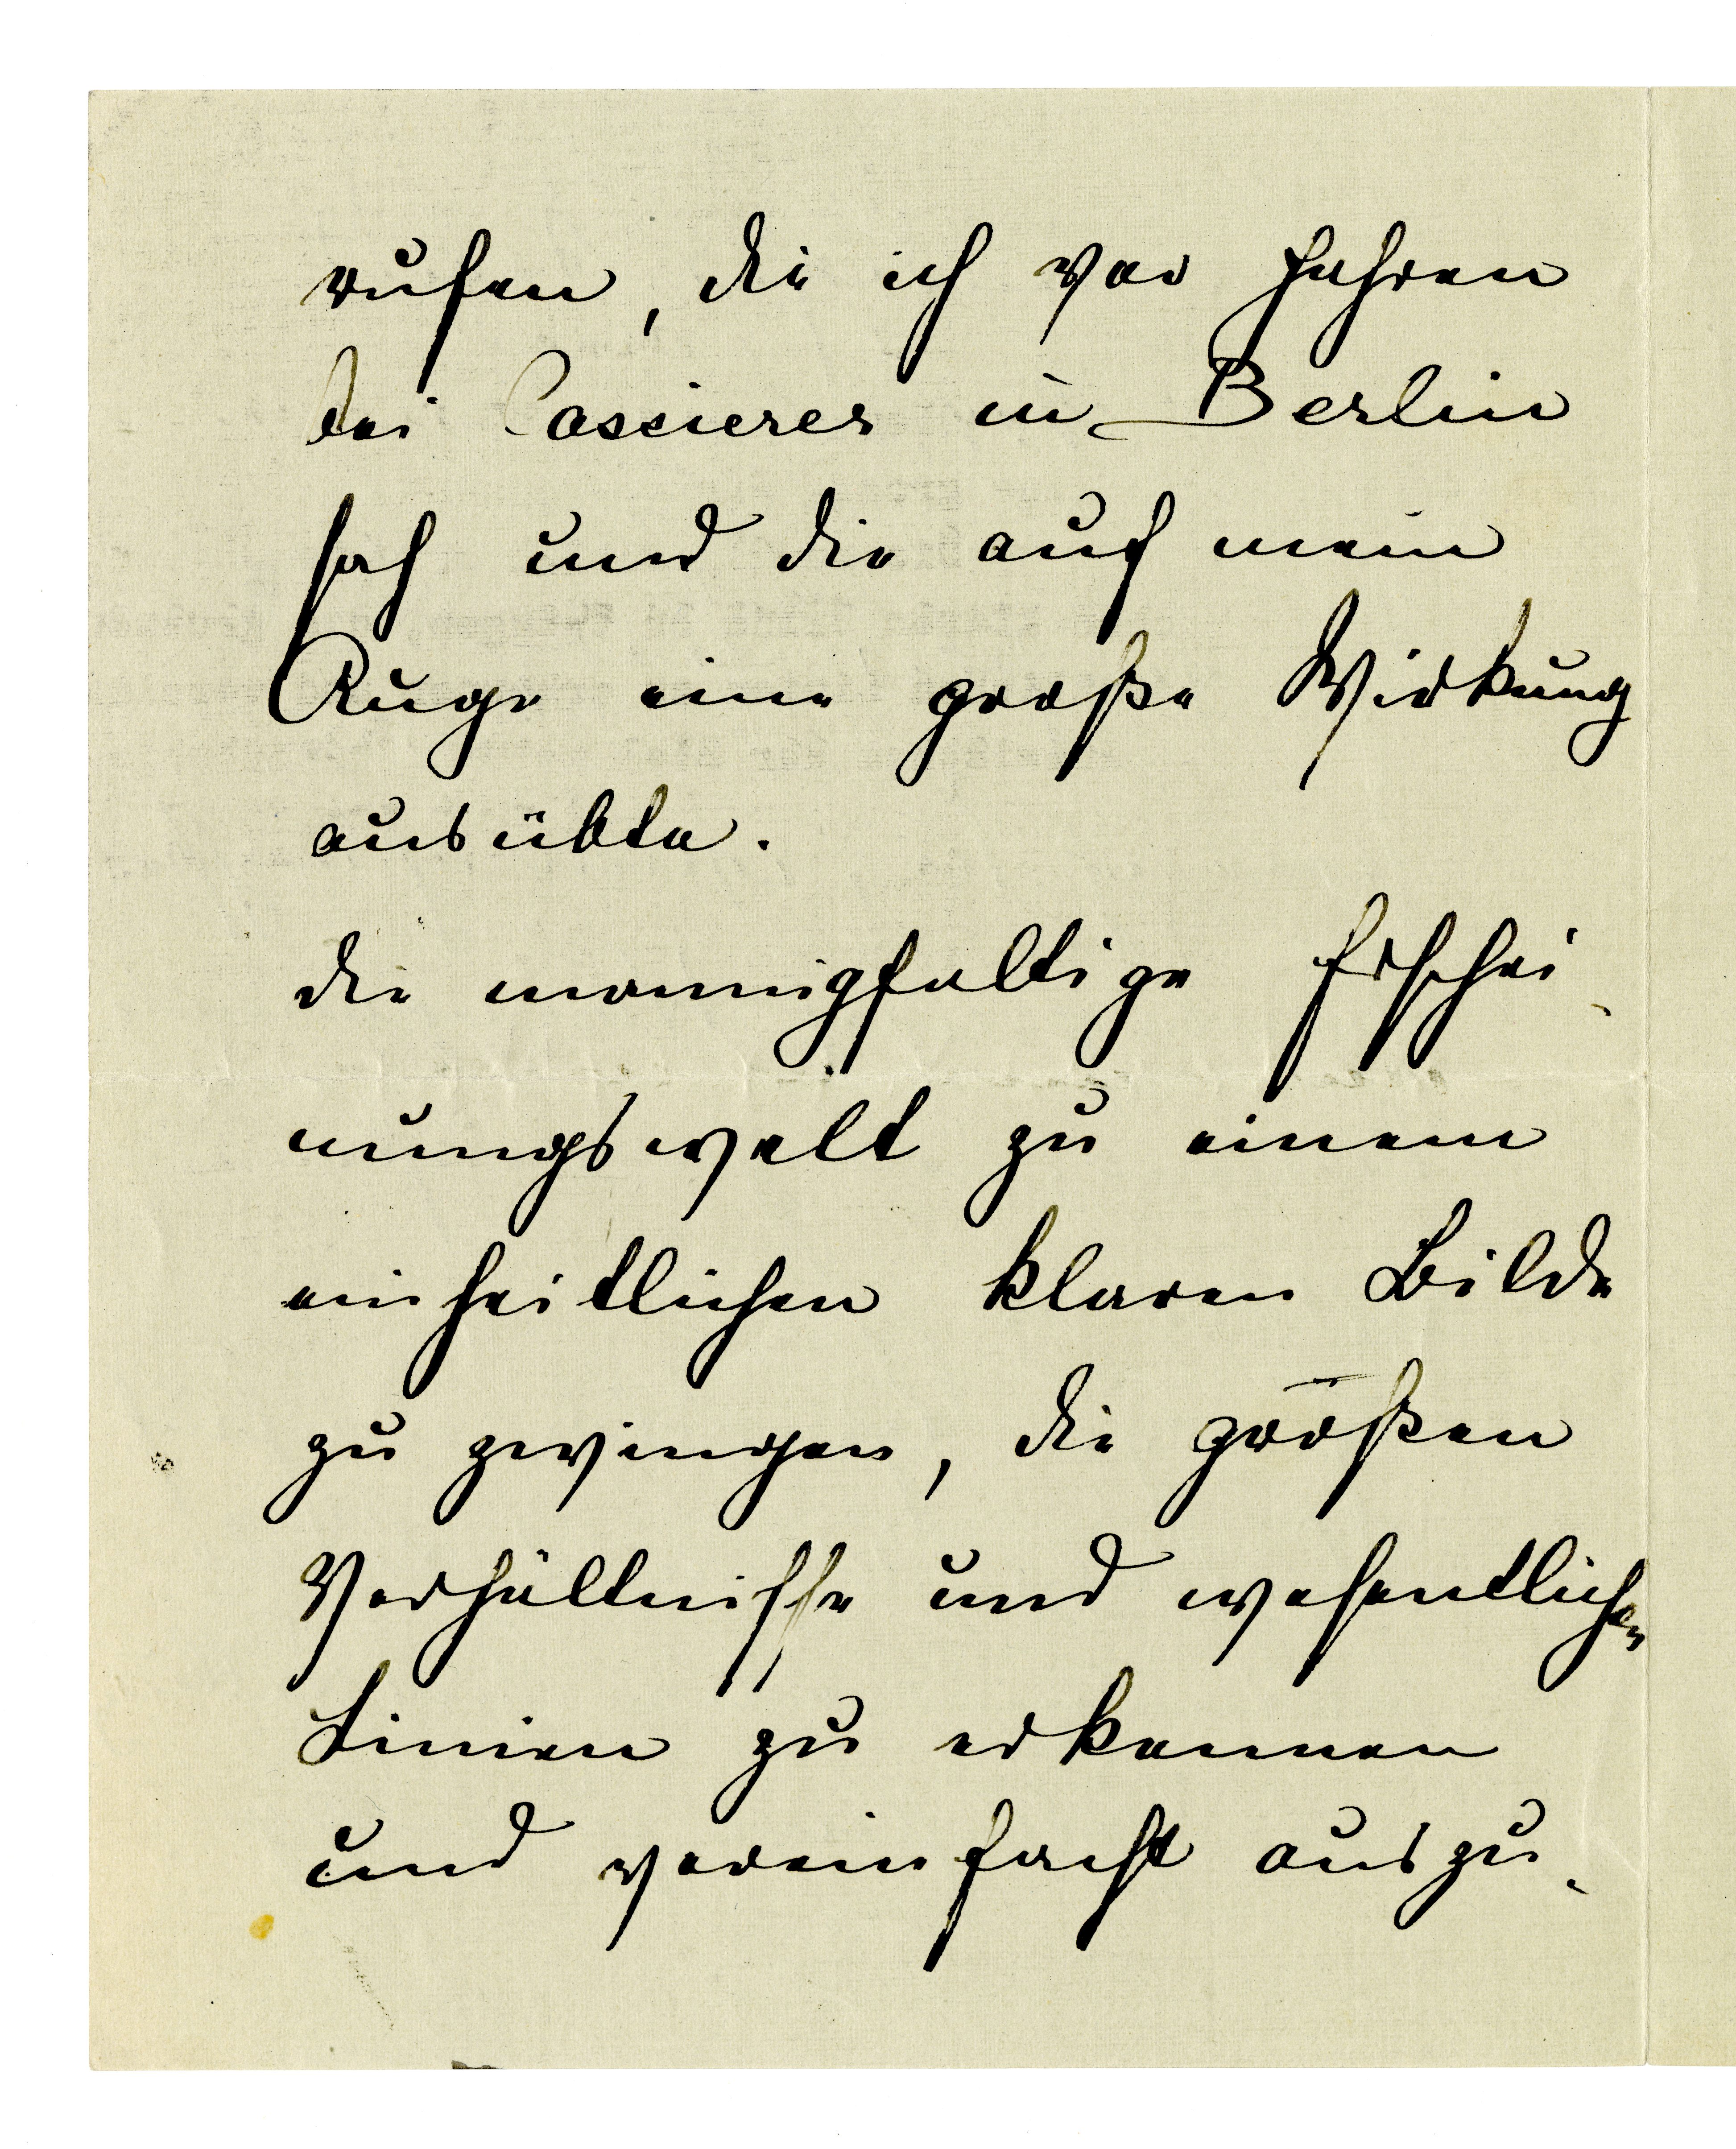 rufen, die ich vor Jahren
bei Cassierer in Berlin
sah und die auf mein
Auge eine große Wirkung
ausübte.
Die mannigfaltige Erschei-
nungswelt zu einem
einheitlichen klaren Bilde
zu zwingen, die großen
Verhältnisse und wesentlichen
Linien zu erkennen
und vereinfacht auszu-